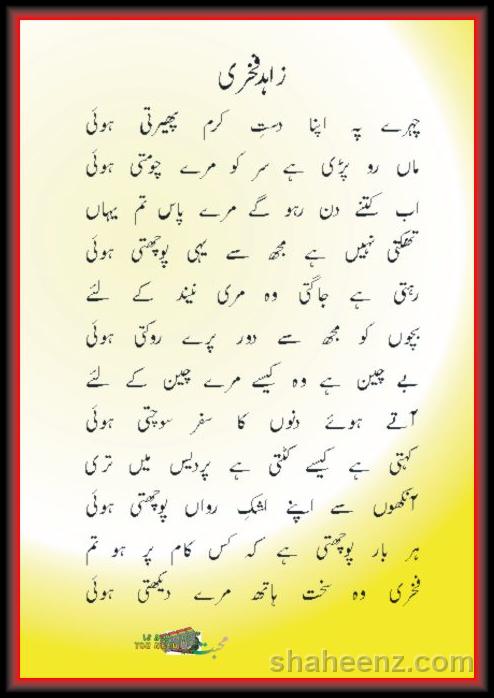 زاہد فخری
چہرے پہ اپنا دستِ کرم پھیرتی ہوئی
ماں رو پڑی ہے سر کو مرے چومتی ہوئی
اب کتنے دن رہو گے مرے پاس تم یہاں
تھکتی نہیں ہے مجھ سے یہی پوچھتی ہوئی
رہتی ہے جاگتی وہ مری نیند کے لئے
بچوں کو مجھ سے دور پرے روکتی ہوئی
بے چین ہے وہ کیسے مرے چین کے لئے
آتے ہوئے دنوں کا سفر سوچتی ہوئی
کہتی ہے کیسے کٹتی ہے پردیس میں تری
آنکھوں سے اپنے اشکِ رواں پوچھتی ہوئی
ہر بار پوچھتی ہے کہ کس کام پر ہو تم
فخری وہ سخت ہاتھ مرے دیکھتی ہوئی
محبت
shaheenz.com